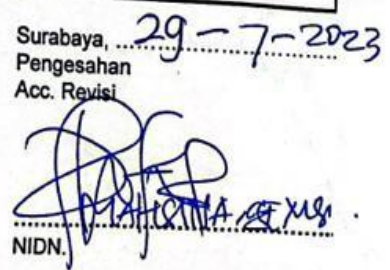 Surabaya, 29-7-2023
Pengesahan
Acc. Revisi
NIDN.